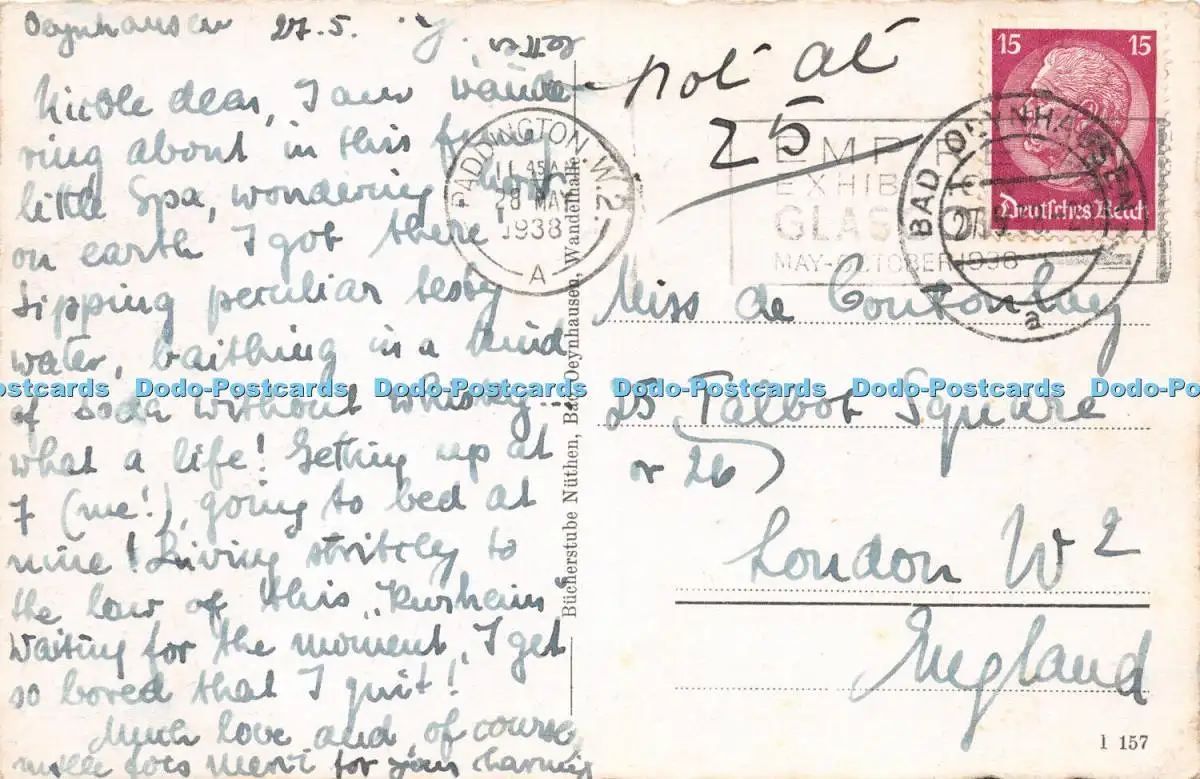 Oeynhausen 27.5. y.
letter.
Nicole dear, I am wande-
ring about in this funny
little Spa, wondering how
on earth I got there
Sipping peculiar testy
water, baithing in a kind
of soda without whiskey...
what a life! Getting up at
7 (me!), going to bed at
nine! Living strictley to
the law of this „Kurheim"
Waiting for the moment, I get
so bored that I quit!
Much love and, of course,
mille fois merci for your charming
Bücherstube Nüthen, Bad Oeynhausen, Wandelhalle
not at
25
PADDINGTON. W.2.
11 45 AM
28 MAY
1938
A
EMPIRE
EXHIB
GLAS
MAY-OCTOBER 1938
15 15
Deutsches Reich
BAD OEYNHAUSEN
a
Miss de
25 Talbot Square
or 26)
London W2
England
1 157
Dodo-Postcards Dodo-Postcards Dodo-Postcards Dodo-Postcards Dodo-Postcards Dodo-Postcards